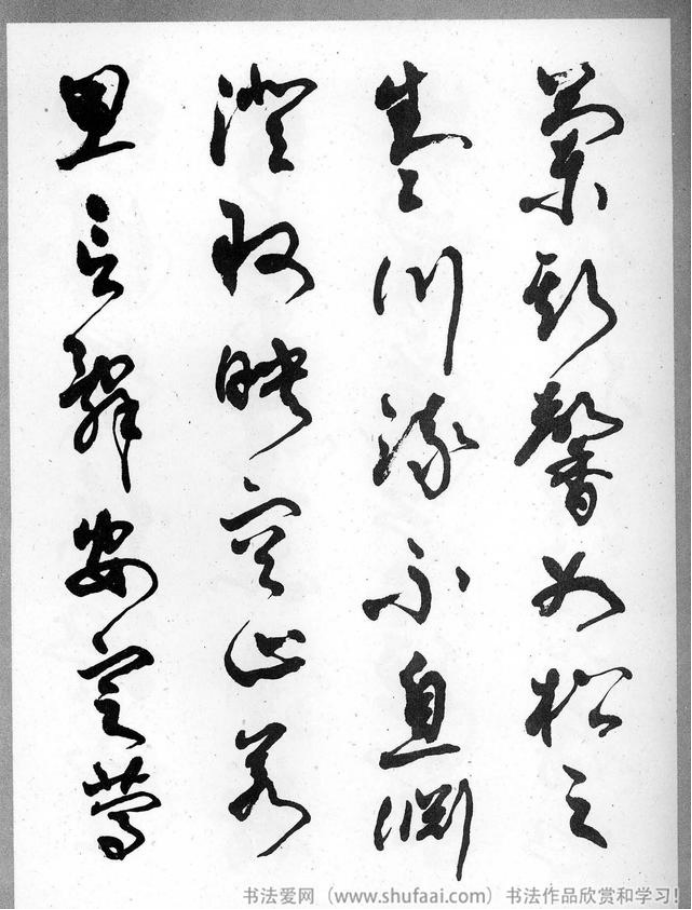 兰斯馨如松之
盛川流不息渊
澄取映容止若
思言辞安定笃
书法爱网（www.shufaai.com）书法作品欣赏和学习！